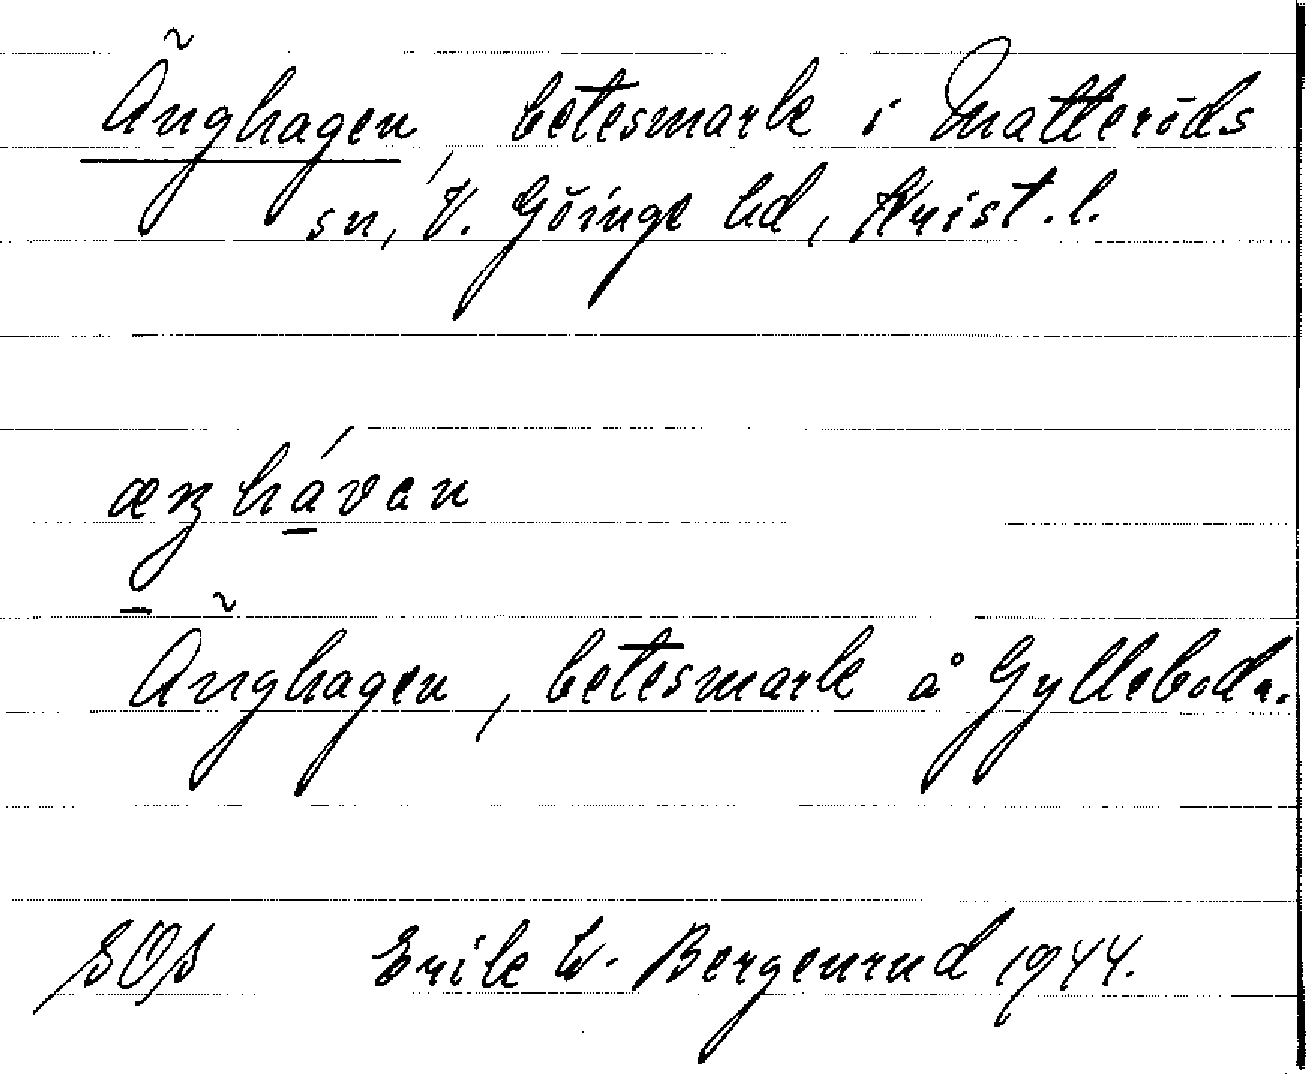 Änghagen, betesmark i Matteröds
sn, V. Göinge hd, Krist. l.
æŋhávan
Änghagen, betesmark å Gylleboda.
SOS Erik W. Bergenrud 1944.